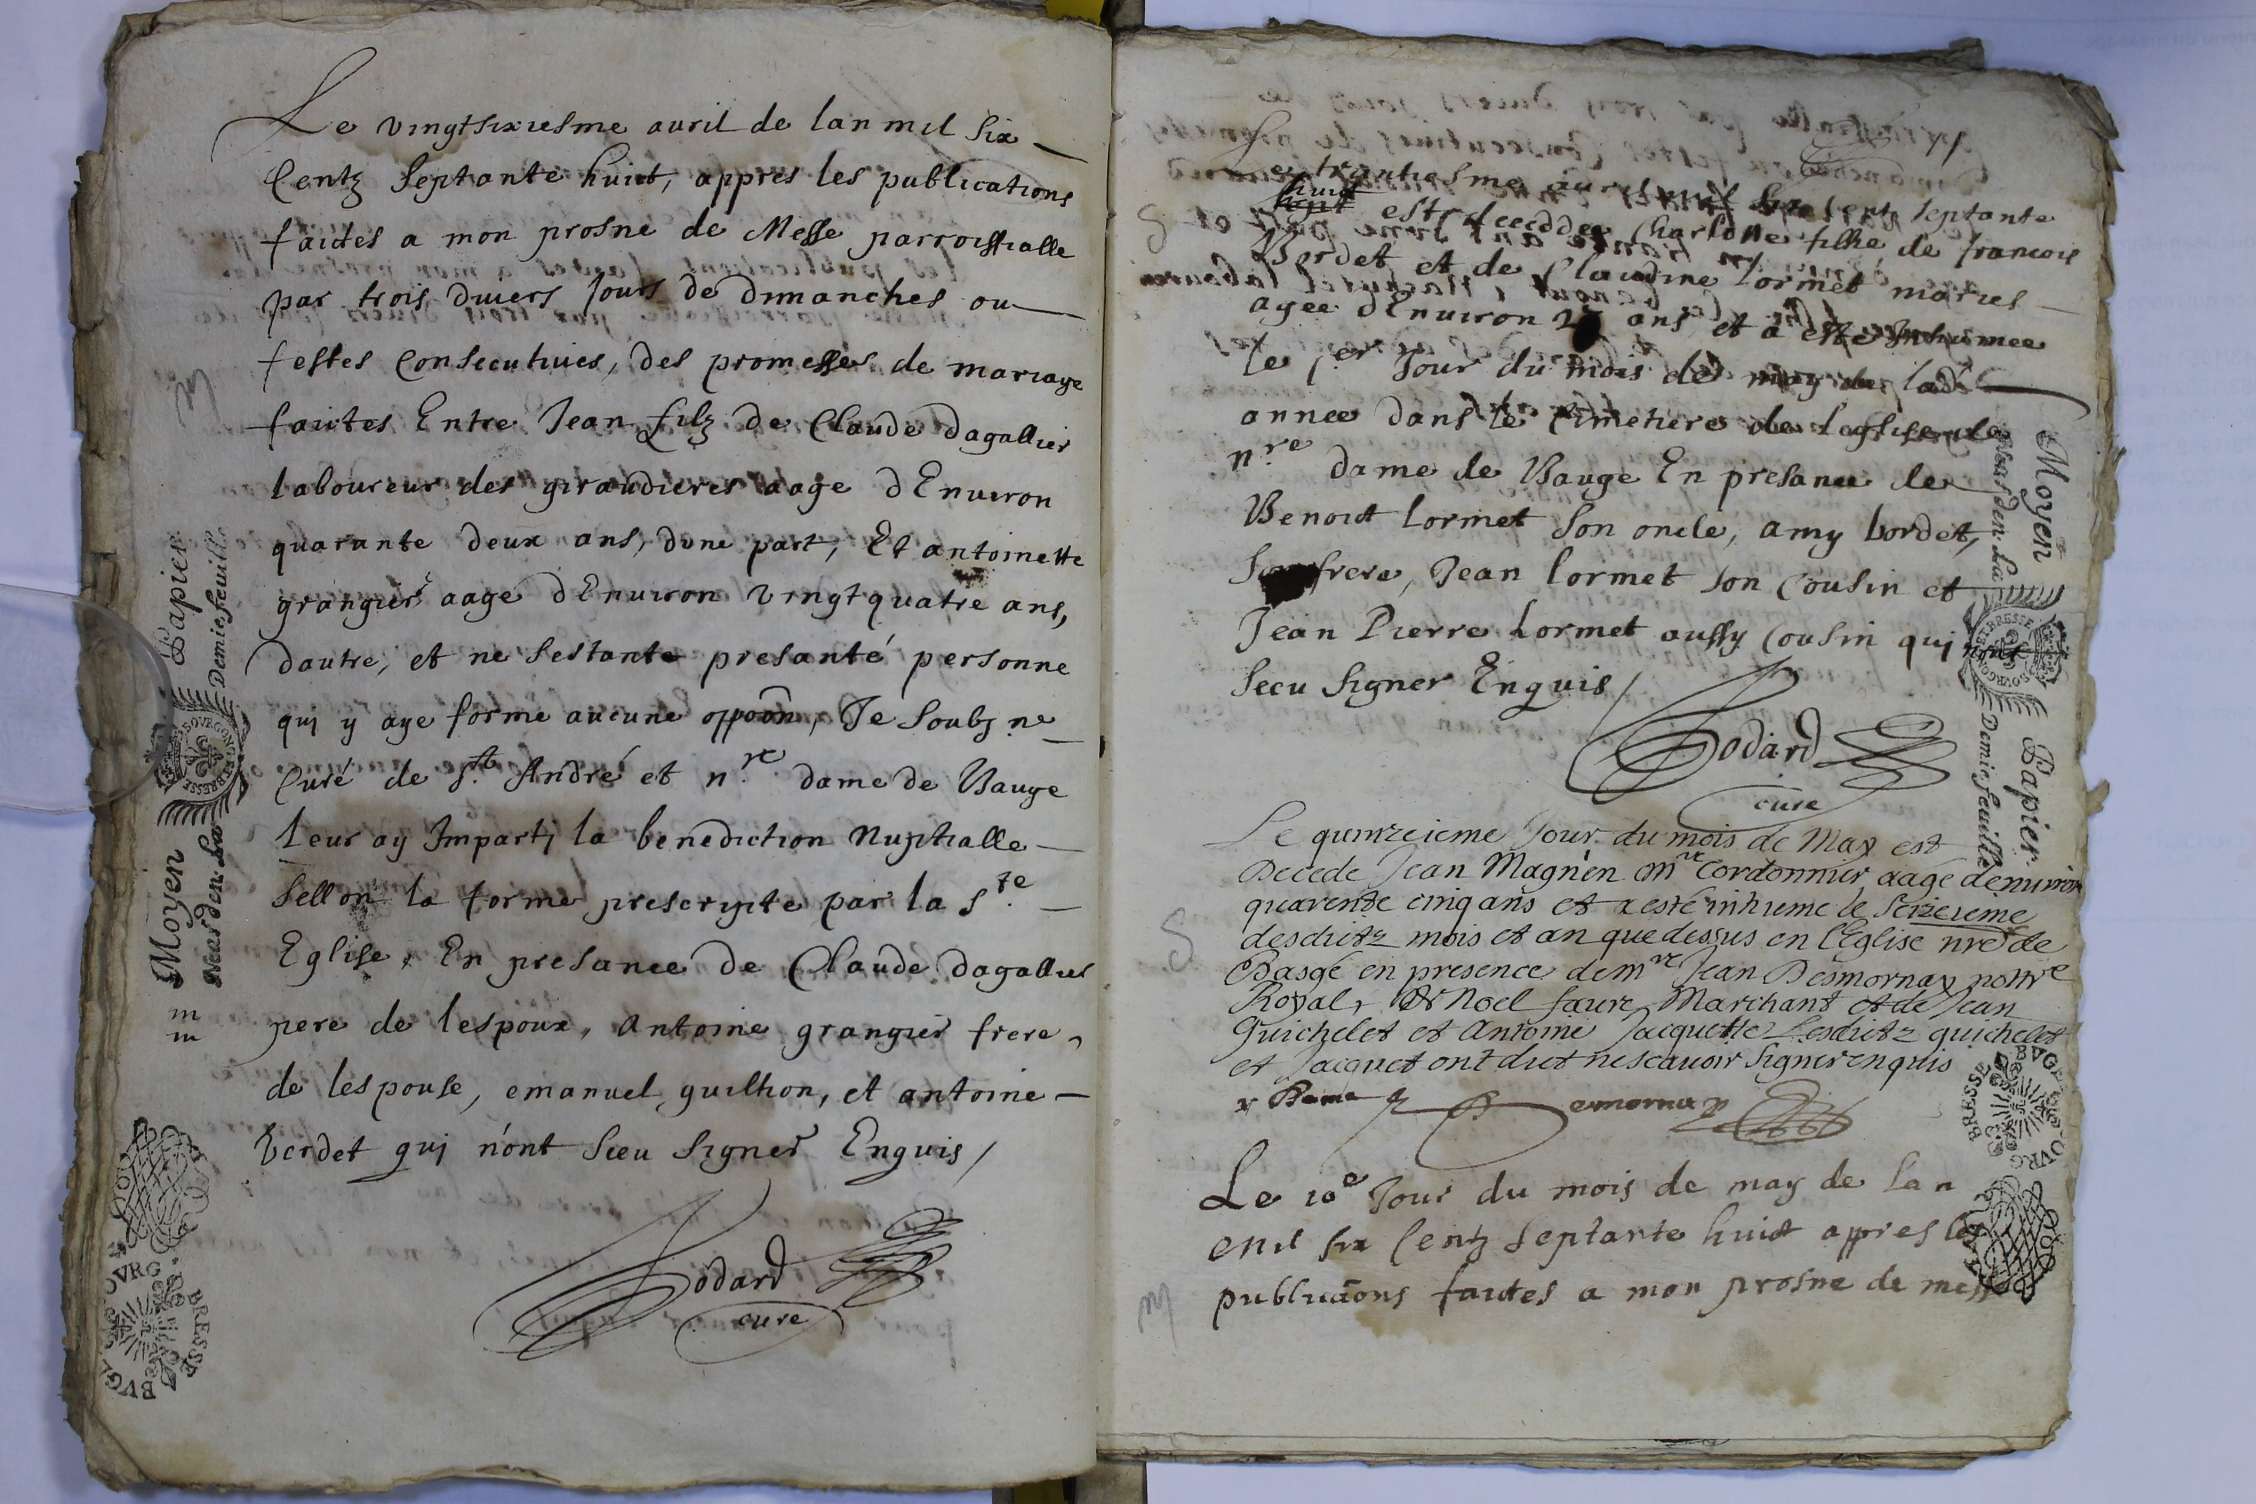 Le vingtsixiesme auril de lan mil six
Centz Septante huict, appres les publications
faictes a mon prosne de Messe parroissialle
par trois diuers Jours de dimanches ou
festes Consecutiues, des promesses de mariage
faictes Entre Jean filz de Claude dagallier
laboureur des giraudieres aage dEnuiron
quarante deux ans, dune part, Et antoinette
grangier aage dEnuiron vingtquatre ans,
dautre, et ne Sestante presanté personne
qui y aye forme aucune oppoon, Je Soubz.ne
Curé de St. André et nre. dame de Bauge
leur ay Imparty la benediction Nuptialle
Sellon la forme prescripte par la Ste.
Eglise, En presance de Claude dagallier
pere de lespoux, Antoine grangier frere
de lespouse, emanuel guilhon, et antoine
bordet qui n'ont Sceu Signer Enquis /
Godard
cure
m
Moyen Papier
Neuf den. La Demie feuille
BOVRGONG BRESSE
BOVRG BRESSE BVGE
Le trantiesme auril mil Six Centz Septante
huict
est decedee Charlotte filhe de francois
Bordet et de Claudine lormet maries
agee dEnuiron ans et a esté Inhumee
le 1er Jour du mois de may de lad
annee dans le Cimetiere de leglise de
nre. dame de Bauge En presance de
Benoict lormet Son oncle, amy bordet,
Son frere, Jean lormet son Cousin et
Jean Pierre lormet aussy Cousin qui nont
Sceu Signer Enquis /
Godard
cure
Le quinzeieme Jour du mois de May est
Decede Jean Magnen mre Cordonnier aage denuiron
quarente cinq ans et a esté inhume le Seizeieme
desdictz mois et an que dessus en l'Eglise nre de
Basgé en presence de mre Jean Desmornay nottre
Royal, Noel faure Marchant et de Jean
Guichelet et Antoine Jacquette Lesdictz guichelet
et Jacquet ont dict ne scauoir Signer enquis
x Dame Demornay
Le 10e Jour du mois de may de lan
mil six Centz Septante huict appres les
publications faictes a mon prosne de messe
S
S
m
Moyen Papier
Neuf den. La Demie feuille
BRESSE BOVRGO
BRESSE BVGE BOVRG